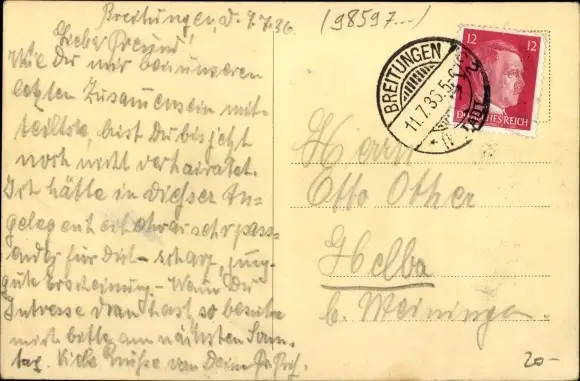 Breitungen, d. 7.7.36.
(98597...)
Lieber Freund!
Wie Du mir bei unseren
letzten Zusammensein mit-
teiltest, bist Du bis jetzt
noch nicht verheiratet.
Ich hätte in dieser An-
gelegenheit etwas sehr pass-
endes für Dich - scharf, jung-
gute Erscheinung - Wenn Du
Intresse dran hast, so besuche
mich bitte am nächsten Sonn-
tag. Viele Grüße von Deinem
BREITUNGEN
11.7.36.5-6
12 12
DEUTSCHES REICH
Herrn
Otto Other
Helba
b. Meiningen.
20-